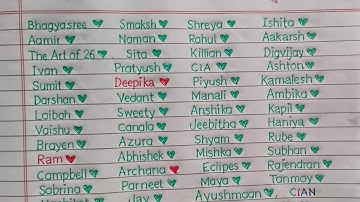 Bhagyasree Smaksh Shreya Ishita
Aamir Naman Rahul Aakarsh
The Art of 26 Sita Killian Digvijay
Ivan Pratyush CIA Ashton
Sumit Deepika Piyush Kamalesh
Darshan Vedant Manali Ambika
Laiboh Sweety Anshika Kapil
Vaishu Canala Jeebitha Haniya
Brayen Azura Shyam Rube
Ram Abhishek Mishka Subhan
Campbell Archana Eclipes Rajendran
Sabrina Parneet Maya Tanmoy
Jay Ayushmaan CIAN